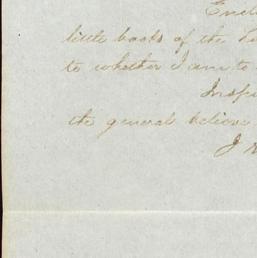 Encl
little books of the
to whether I am to
Inspe
the general believe
J